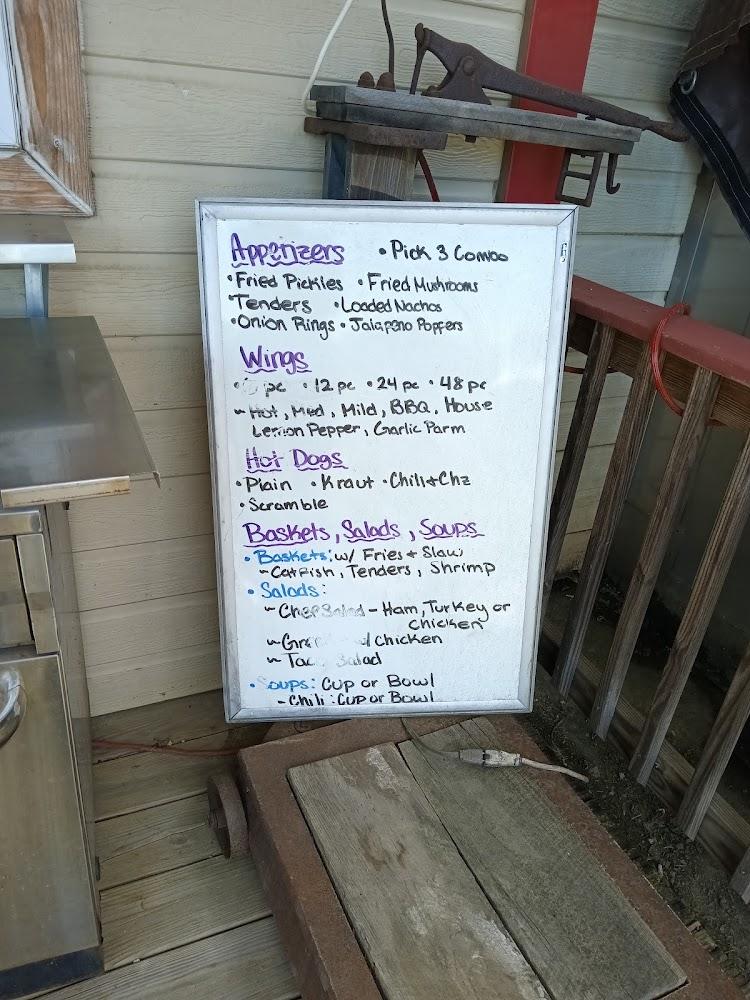 Appetizers • Pick 3 Combo
• Fried Pickles • Fried Mushrooms
• Tenders • Loaded Nachos
• Onion Rings • Jalapeno Poppers
Wings
• pc • 12 pc • 24 pc • 48 pc
~ Hot, Med, Mild, BBQ, House
Lemon Pepper, Garlic Parm
Hot Dogs
• Plain • Kraut • Chili + Chz
• Scramble
Baskets, Salads, Soups
• Baskets: w/ Fries + Slaw
~ Catfish, Tenders, Shrimp
• Salads:
~ Chef Salad - Ham, Turkey or
Chicken
~ w/ Chicken
~ Taco Salad
• Soups: Cup or Bowl
- Chili: Cup or Bowl